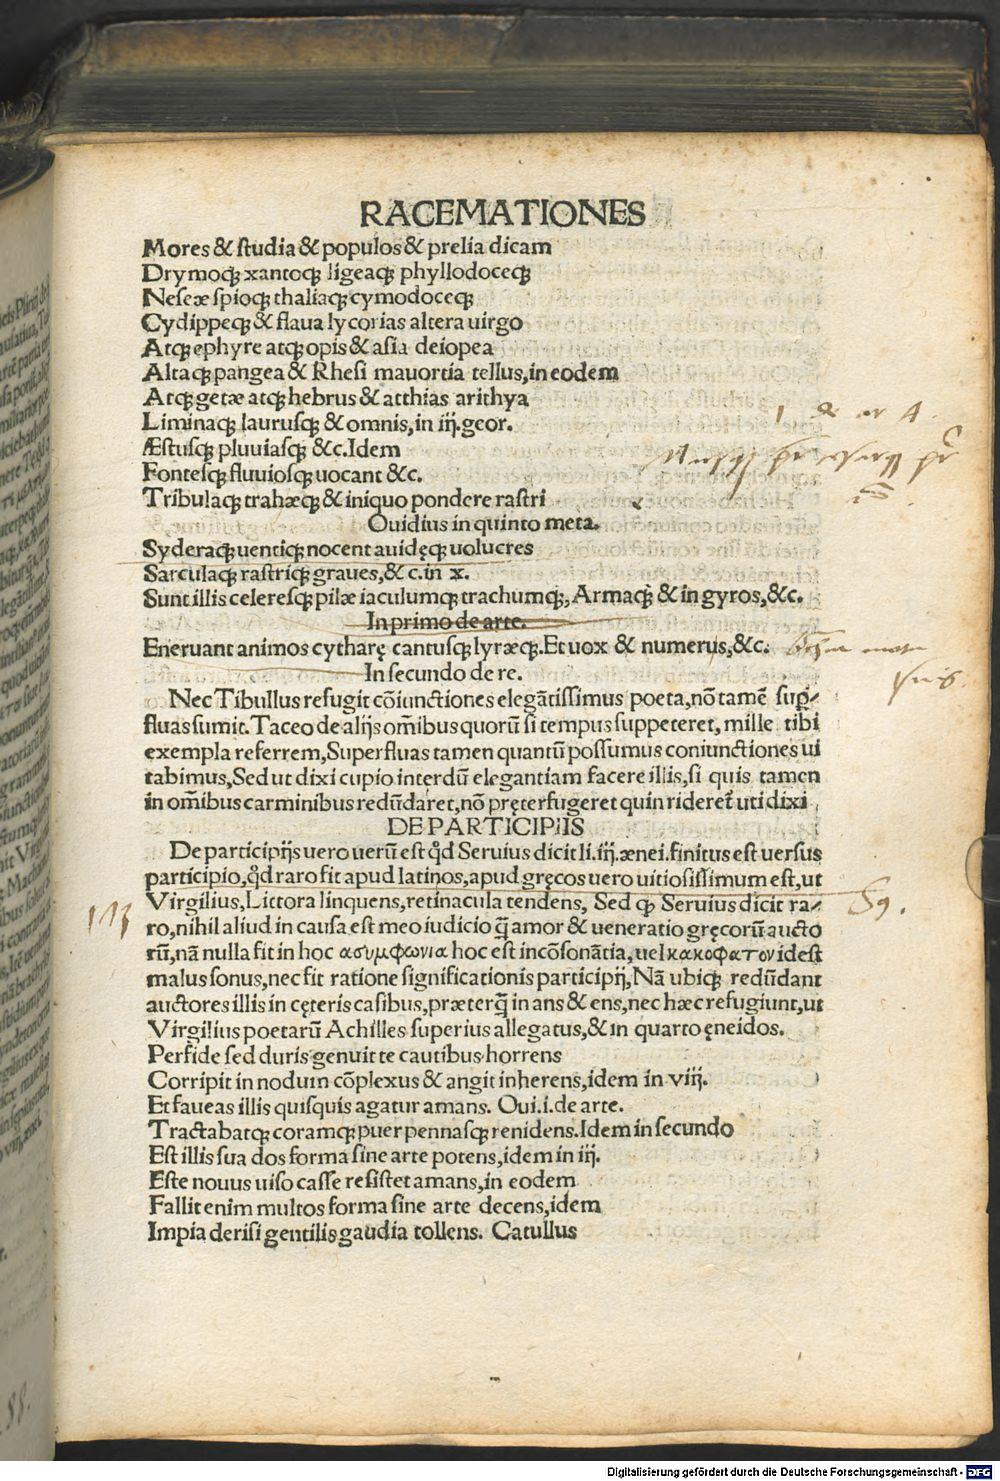 RACEMATIONES
Mores & studia & populos & prelia dicam
Drymoqꝫ xantoqꝫ ligeaqꝫ phyllodoceqꝫ
Neseæ spioqꝫ thaliaqꝫ cymodoceqꝫ
Cydippeqꝫ & flaua lycorias altera uirgo
Atqꝫ ephyre atqꝫ opis & asia deiopea
Altaqꝫ pangea & Rhesi mauortia tellus, in eodem
Atqꝫ getæ atqꝫ hebrus & atthias arithya
Liminaqꝫ laurusqꝫ & omnis, in iij. geor.
Æstusqꝫ pluuiasqꝫ &c. Idem
Fontesqꝫ fluuiosqꝫ uocant &c.
Tribulaqꝫ trahæqꝫ & iniquo pondere rastri
Ouidius in quinto meta.
Syderaqꝫ uentiqꝫ nocent auidęqꝫ uolucres
Sarculaqꝫ rastriqꝫ graues, & c. in x.
Sunt illis celeresqꝫ pilæ iaculumqꝫ trachumqꝫ, Armaqꝫ & in gyros, &c.
In primo de arte.
Eneruant animos cytharę cantusqꝫ lyræqꝫ. Et uox & numerus, &c.
In secundo de re.
Nec Tibullus refugit cōiunctiones elegātissimus poeta, nō tamē suꝑ⸗
fluas sumit. Taceo de alijs om̄ibus quorū si tempus suppeteret, mille tibi
exempla referrem, Superfluas tamen quantū possumus coniunctiones ui
tabimus, Sed ut dixi cupio interdū elegantiam facere illis, si quis tamen
in om̄ibus carminibus redūdaret, nō pręterfugeret quin rideret̄ uti dixi
DE PARTICIPIIS
De participijs uero uerū est qd̄ Seruius dicit li. iij. ænei. finitus est uersus
participio, qd̄ raro fit apud latinos, apud gręcos uero uitiosissimum est, ut
Virgilius, Littora linquens, retinacula tendens, Sed qꝫ Seruius dicit ra⸗
ro, nihil aliud in causa est meo iudicio q̄ amor & ueneratio gręcorū aucto
rū, nā nulla fit in hoc ασυμφωνια hoc est incōsonātia, uel κακοφατον idest
malus sonus, nec fit ratione significationis participij, Nā ubiqꝫ redūdant
auctores illis in cęteris casibus, præterq̄ in ans & ens, nec hæc refugiunt, ut
Virgilius poetarū Achilles superius allegatus, & in quarto ęneidos.
Perfide sed duris genuit te cautibus horrens
Corripit in nodum cōplexus & angit inherens, idem in viij.
Et faueas illis quisquis agatur amans. Oui. i. de arte.
Tractabatqꝫ coramqꝫ puer pennasqꝫ renidens. Idem in secundo
Est illis sua dos forma sine arte potens, idem in iij.
Este nouus uiso casse resistet amans, in eodem
Fallit enim multos forma sine arte decens, idem
Impia derisi gentilis gaudia tollens. Catullus
88.
Digitalisierung gefördert durch die Deutsche Forschungsgemeinschaft - DFG